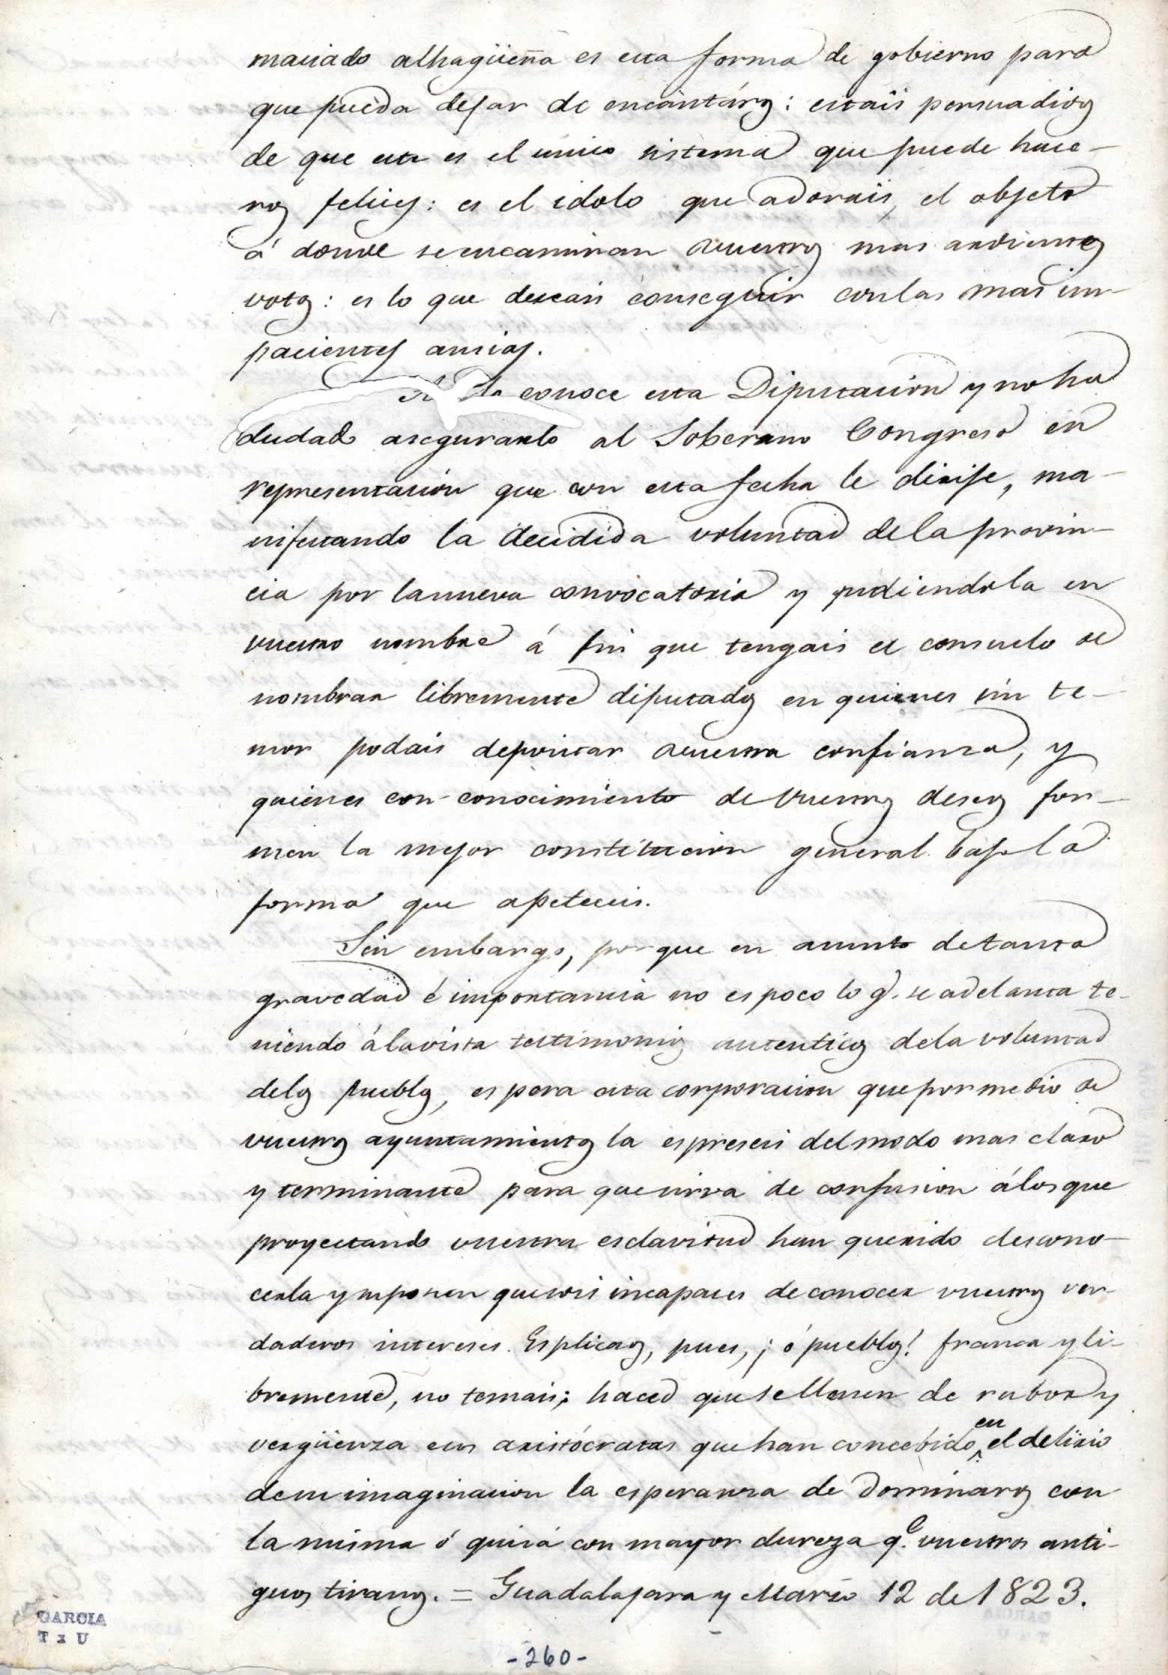 maciado alhagüeña es esta forma de gobierno para
que pueda dejar de encantáros: estais persuadidos
de que este es el unico sistema que puede hace-
ros felices: es el idolo que adorais, el objeto
á donde se encaminan vuestros mas ardientes
votos: es lo que deseais conseguir con las mas im-
pacientes ansias.
conoce esta Diputacion y no ha
dudado asegurarlo al Soberano Congreso en
representacion que con esta fecha le dirije, ma-
nifestando la decidida voluntad de la provin-
cia por la nueva convocatoria y pidiendola en
vuestro nombre á fin que tengais el consuelo de
nombrar libremente diputados en quienes sin te-
mor podais depositar vuestra confianza, y
quienes con conocimiento de vuestros deseos for-
men la mejor constitucion general bajo la
forma que apeteceis.
Sin embargo, porque en asunto de tanta
gravedad é importancia no es poco lo q. se adelanta te-
niendo á la vista testimonios autenticos de la voluntad
de los pueblos, espera esta corporacion que por medio de
vuestros ayuntamientos la espreseis del modo mas claro
y terminante para que sirva de confusion á los que
proyectando vuestra esclavitud han querido descono-
cerla y suponen que sois incapaces de conocer vuestros ver-
daderos intereses. Esplicaos, pues, ¡ó pueblos! franca y li-
bremente, no temais; haced que se llenen de rubor y
vergüenza esos aristócratas que han concebido en el delirio
de su imaginacion la esperanza de dominaros con
la misma ó quizá con mayor dureza qe. vuestros anti-
guos tiranos. = Guadalajara y Marzo 12 de 1823.
GARCIA
T x U
-260-